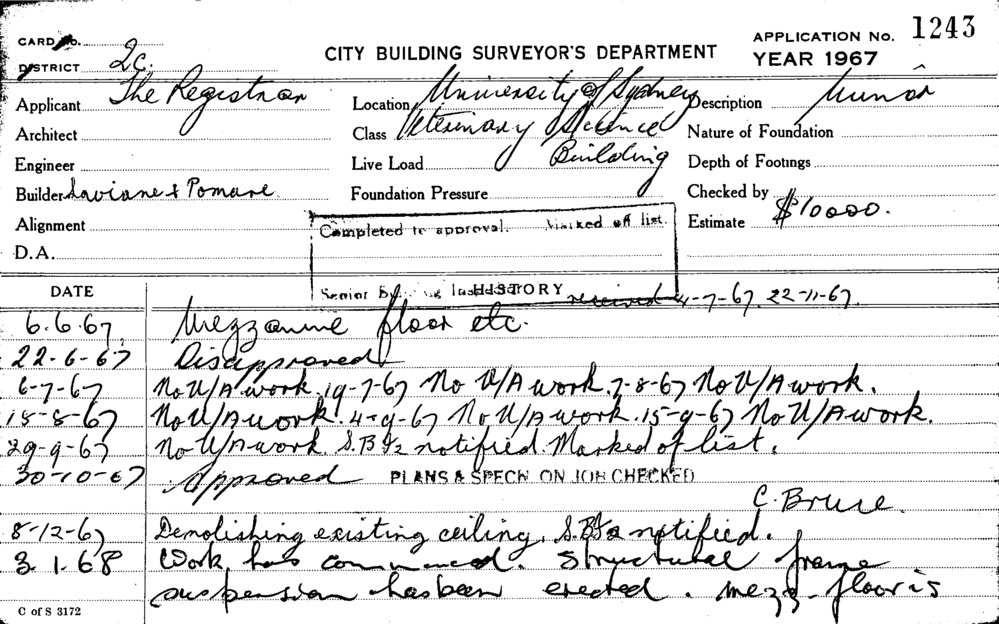 CARD No. APPLICATION No. 1243
DISTRICT 2c. CITY BUILDING SURVEYOR'S DEPARTMENT YEAR 1967
Applicant The Registrar Location University of Sydney Description Minor
Architect Class Veterinary Science Nature of Foundation
Engineer Live Load Building Depth of Footings
Builder Laviane & Pomare Foundation Pressure Checked by
Alignment Completed to approval. Marked off list. Estimate $10000.
D.A.
DATE Senior HISTORY received 4-7-67. 22-11-67.
6.6.67 Mezzanine floor etc.
22-6-67 Disapproved
6-7-67 No U/A work. 19-7-67 No U/A work. 7-8-67 No U/A work.
18-8-67 No U/A work. 4-9-67 No U/A work. 15-9-67 No U/A work.
29-9-67 No U/A work. notified. Marked of list.
30-10-67 Approved PLANS & SPECN ON JOB CHECKED
C. Bruce.
8-12-67 Demolishing existing ceiling. notified.
3.1.68 Work has commenced. Structural frame
suspension has been erected. mezz-floor is
C of S 3172